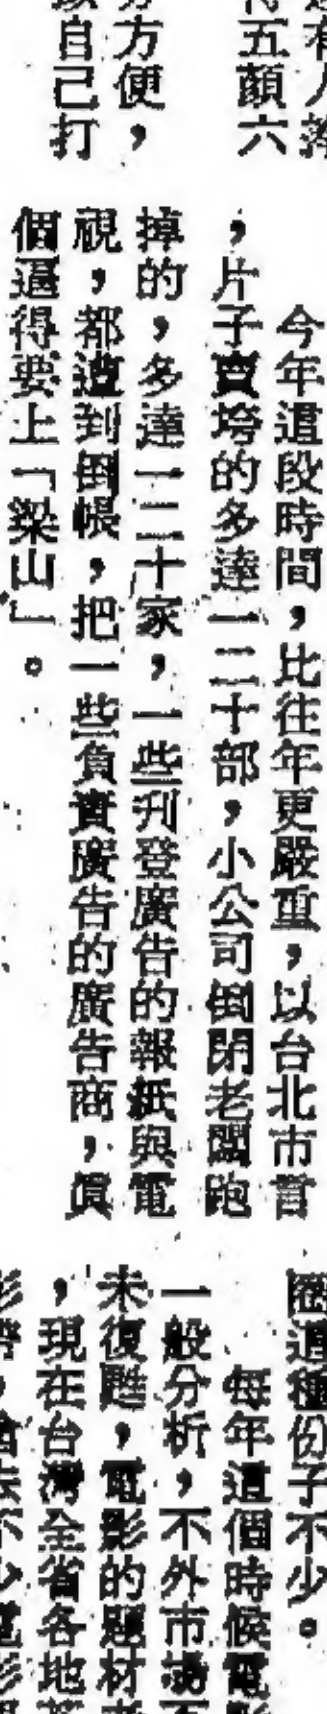 有人捧
得五顏六
方便，
自己打
今年這段時間，比往年更嚴重，以台北市言
，片子賣垮的多達一二十部，小公司倒閉老闆跑
掉的，多達一二十家，一些刋登廣告的報紙與電
視，都遭到倒帳，把一些負責廣告的廣告商，眞
個逼得要上「梁山」。
圈這種份子不少。
每年這個時候電影
一般分析，不外市場不
未復甦，電影的題材
，現在台灣全省各地